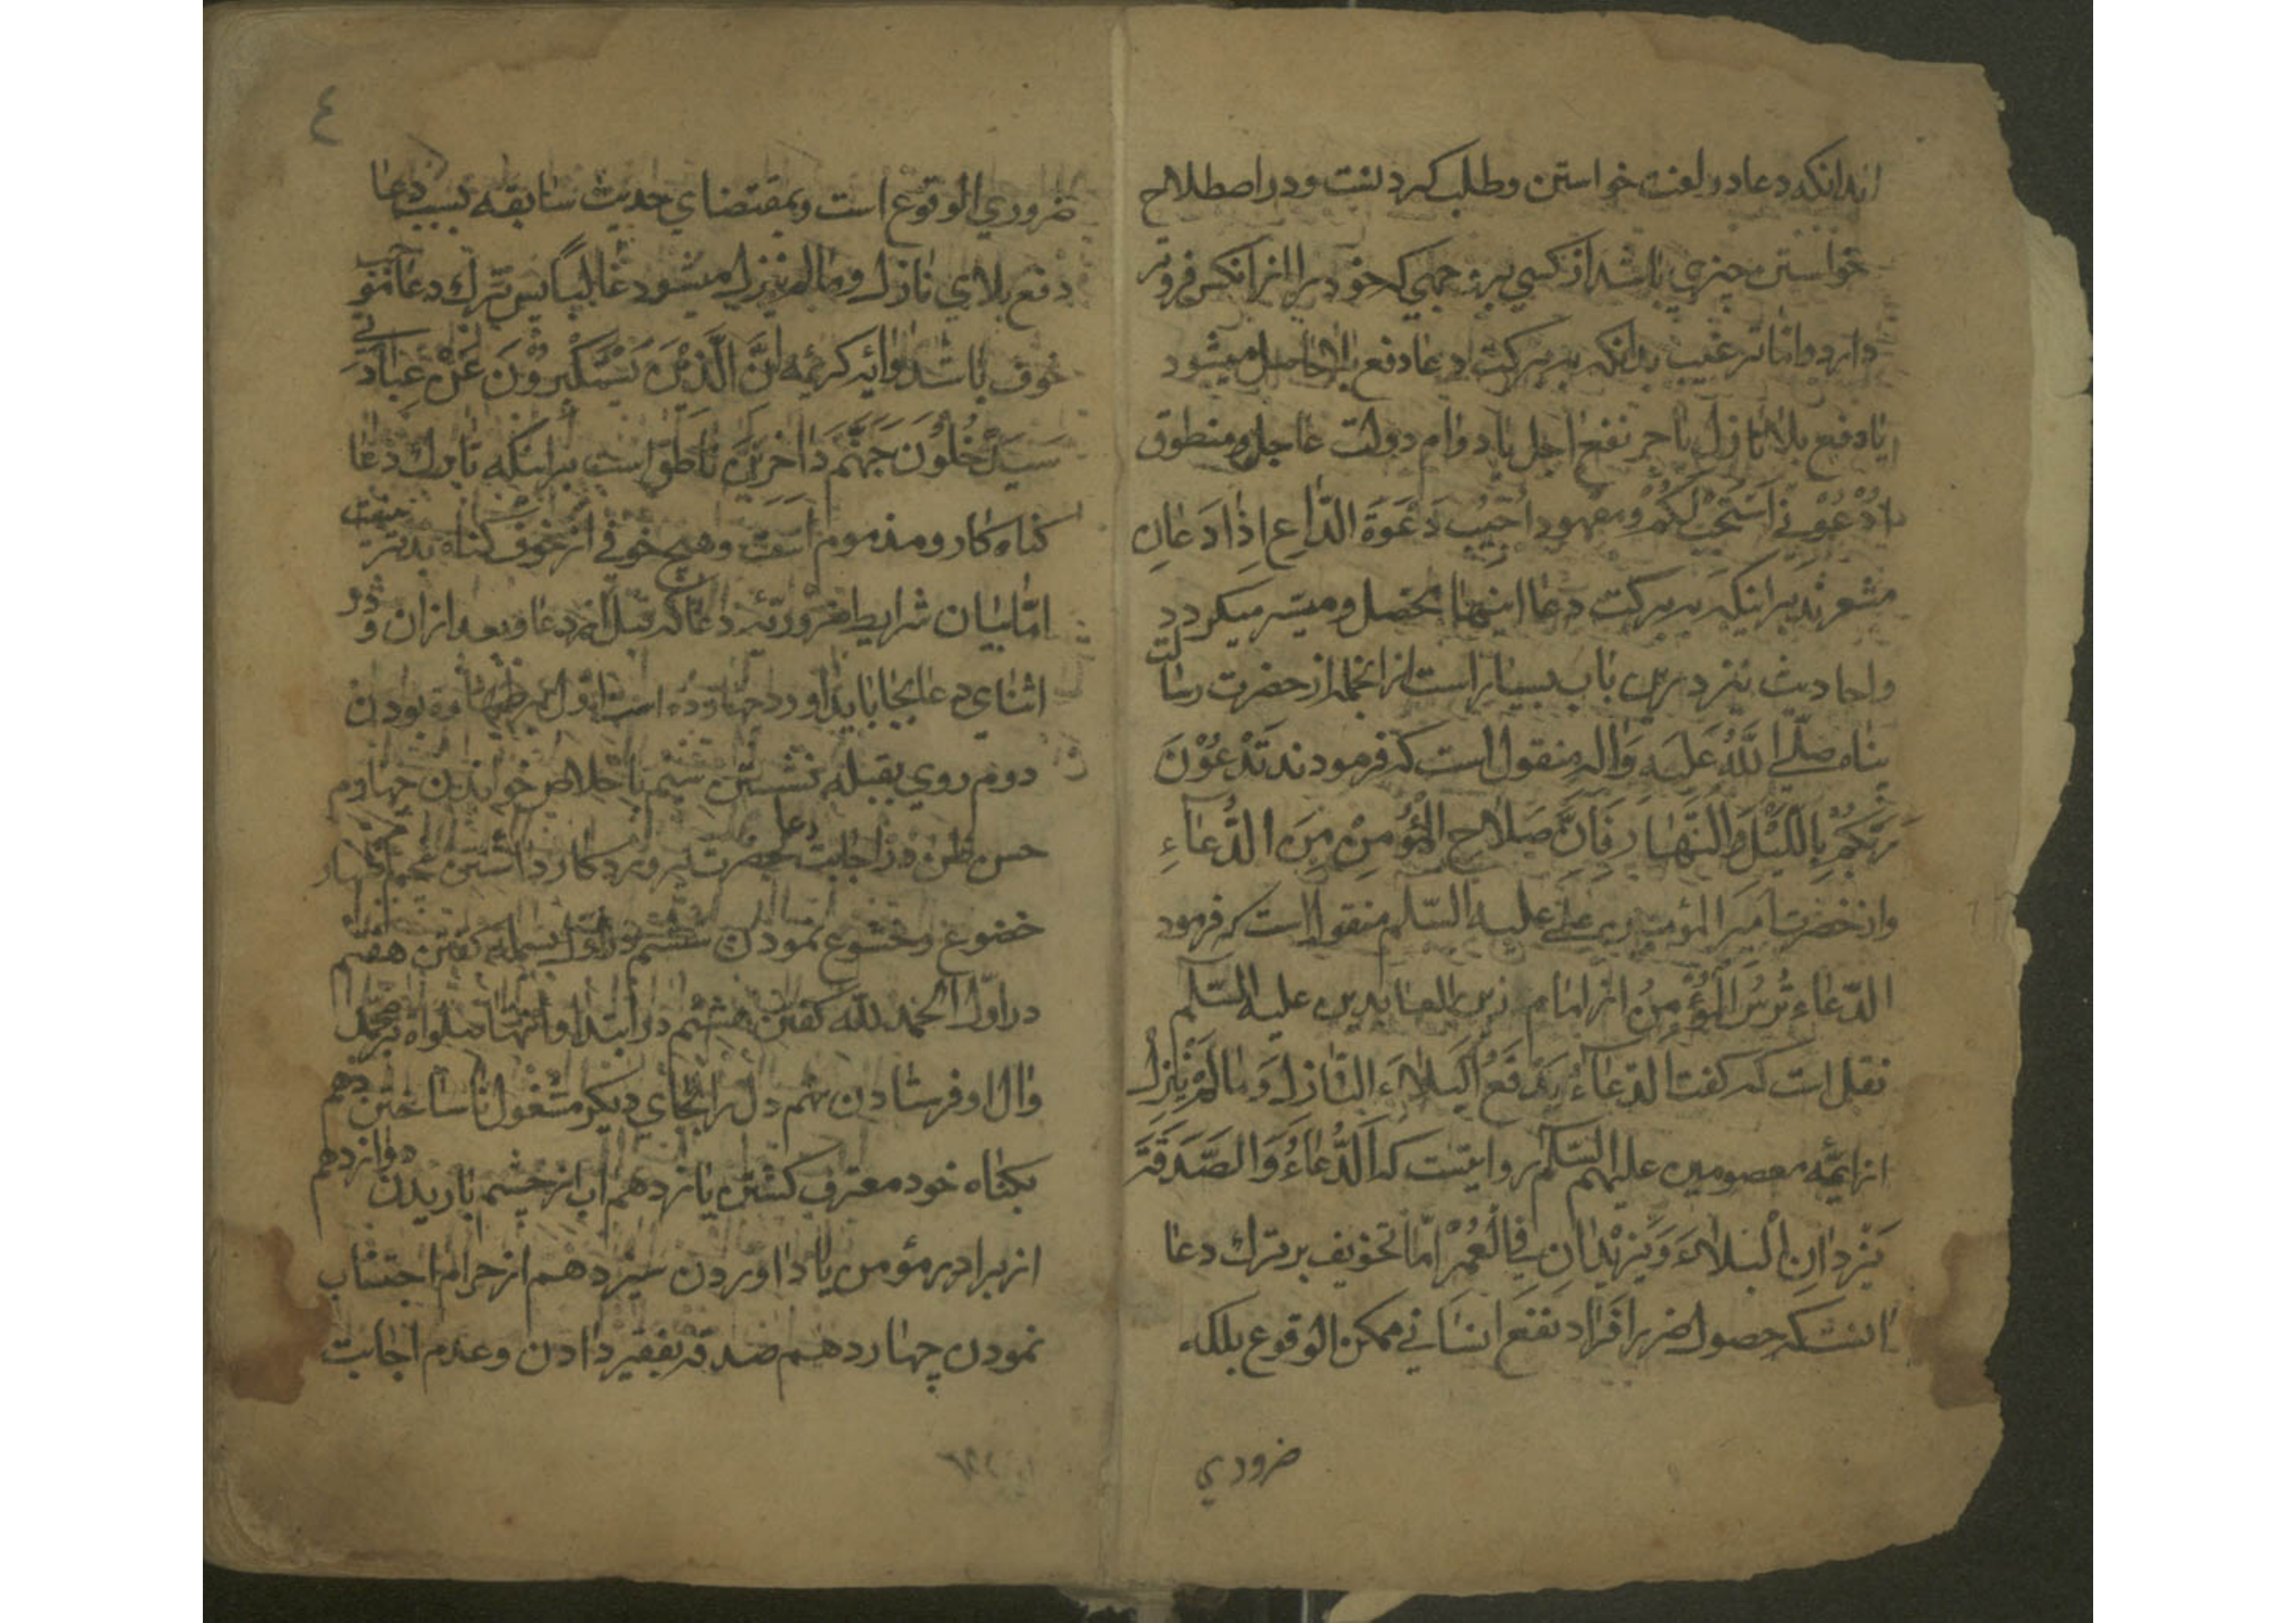 بدانکه دعا در لغت خواستن و طلب کردنست و در اصطلاح
خواستن چیزی باشد از کسی بر وجهی که خود را از انکس فروتر
دارد و اما ترغیب بدانکه به برکت دعا دفع بلا حاصل میشود
یا دفع بلا نازل یا جر نفع اجل یا دوام دولت عاجل و منطوق
اُدْعُوْنِي اَسْتَجِبْ لَكُمْ و اُجِيْبُ دَعْوَةَ الدَّاعِ اِذَا دَعَانِ
مشعرند بر اینکه به برکت دعا اینها بحصل و میسر میکردد
و احادیث نیز درین باب بسیار است از انجمله از حضرت رسالت
پناه صلّي اللّٰهُ عَلَيه وَاله منقول است که فرمودند تَدْعُوْنَ
رَبَّكُمْ بِاللَّيْلِ وَالنَّهَارِ فَاِنَّ صَلَاحَ الْمُؤْمِنِ مِنَ الدُّعَاءِ
و از حضرت امیر المؤمنین علي علیه السّلم منقول است که فرمود
الدّعاء تُرْسُ الْمُؤْمِنُ از امام زین العابدین علیه السّلم
نقل است که کفت الدّعاءُ يَدْفَعُ الْبَلَاءَ النَّازِلَ وَمَالَمْ يَنْزِلْ
از ایمّه معصومین علیهم السّلم روایتست که اَلدُّعَاءُ وَالصَّدَقَةَ
يَرُدَّانِ الْبَلَاءَ وَيَزِيْدَانِ فِي الْعُمْرِ امّا تخویف بر ترك دعا
انست که حصول ضرر افراد نفع انسانی ممکن الوقوع بلکه
ضروري
٤
ضروري الوقوع است و بمقتضاي حدیث سابقه بسبب دعا
دفع بلاي نازل و مالم ینزل میشود غالبا پس ترك دعا موجب
خوف باشد و ایه کریمه اِنَّ الَّذِيْنَ يَسْتَكْبِرُوْنَ عَنْ عِبَادَتِي
سَيَدْخُلُوْنَ جَهَنَّمَ دَاخِرِيْنَ ناطق است بر اینکه تارك دعا
کناه کار و مذموم است و هیچ خوفي از خوف کناه بدتر نیست
امّا بیان شرایط ضروریّه دعا که قبل از دعا و بعد ازان و در
اثنای دعا بجا باید اورد چهارده است اول بر طهارة بودن
دوم روي بقبله نشستن سیم با خلاص خواندن چهارم
حسن ظن در اجابت دعا بحضرت پروردکار داشتن پنجم اظهار
خضوع و خشوع نمودن ششم در اول بسمله کفتن هفتم
در اول الحمد لله کفتن هشتم در ابتدا و انتها صلواة بر محمّد
وال او فرستادن نهم دل را بجای دیکر مشغول نا ساختن دهم
بکناه خود معترف کشتن یازدهم اب از چشم باریدن دوازدهم
از برادر مؤمن یاد اوردن سیزدهم از حرام اجتناب
نمودن چهاردهم صدقه بفقیر دادن و عدم اجابت